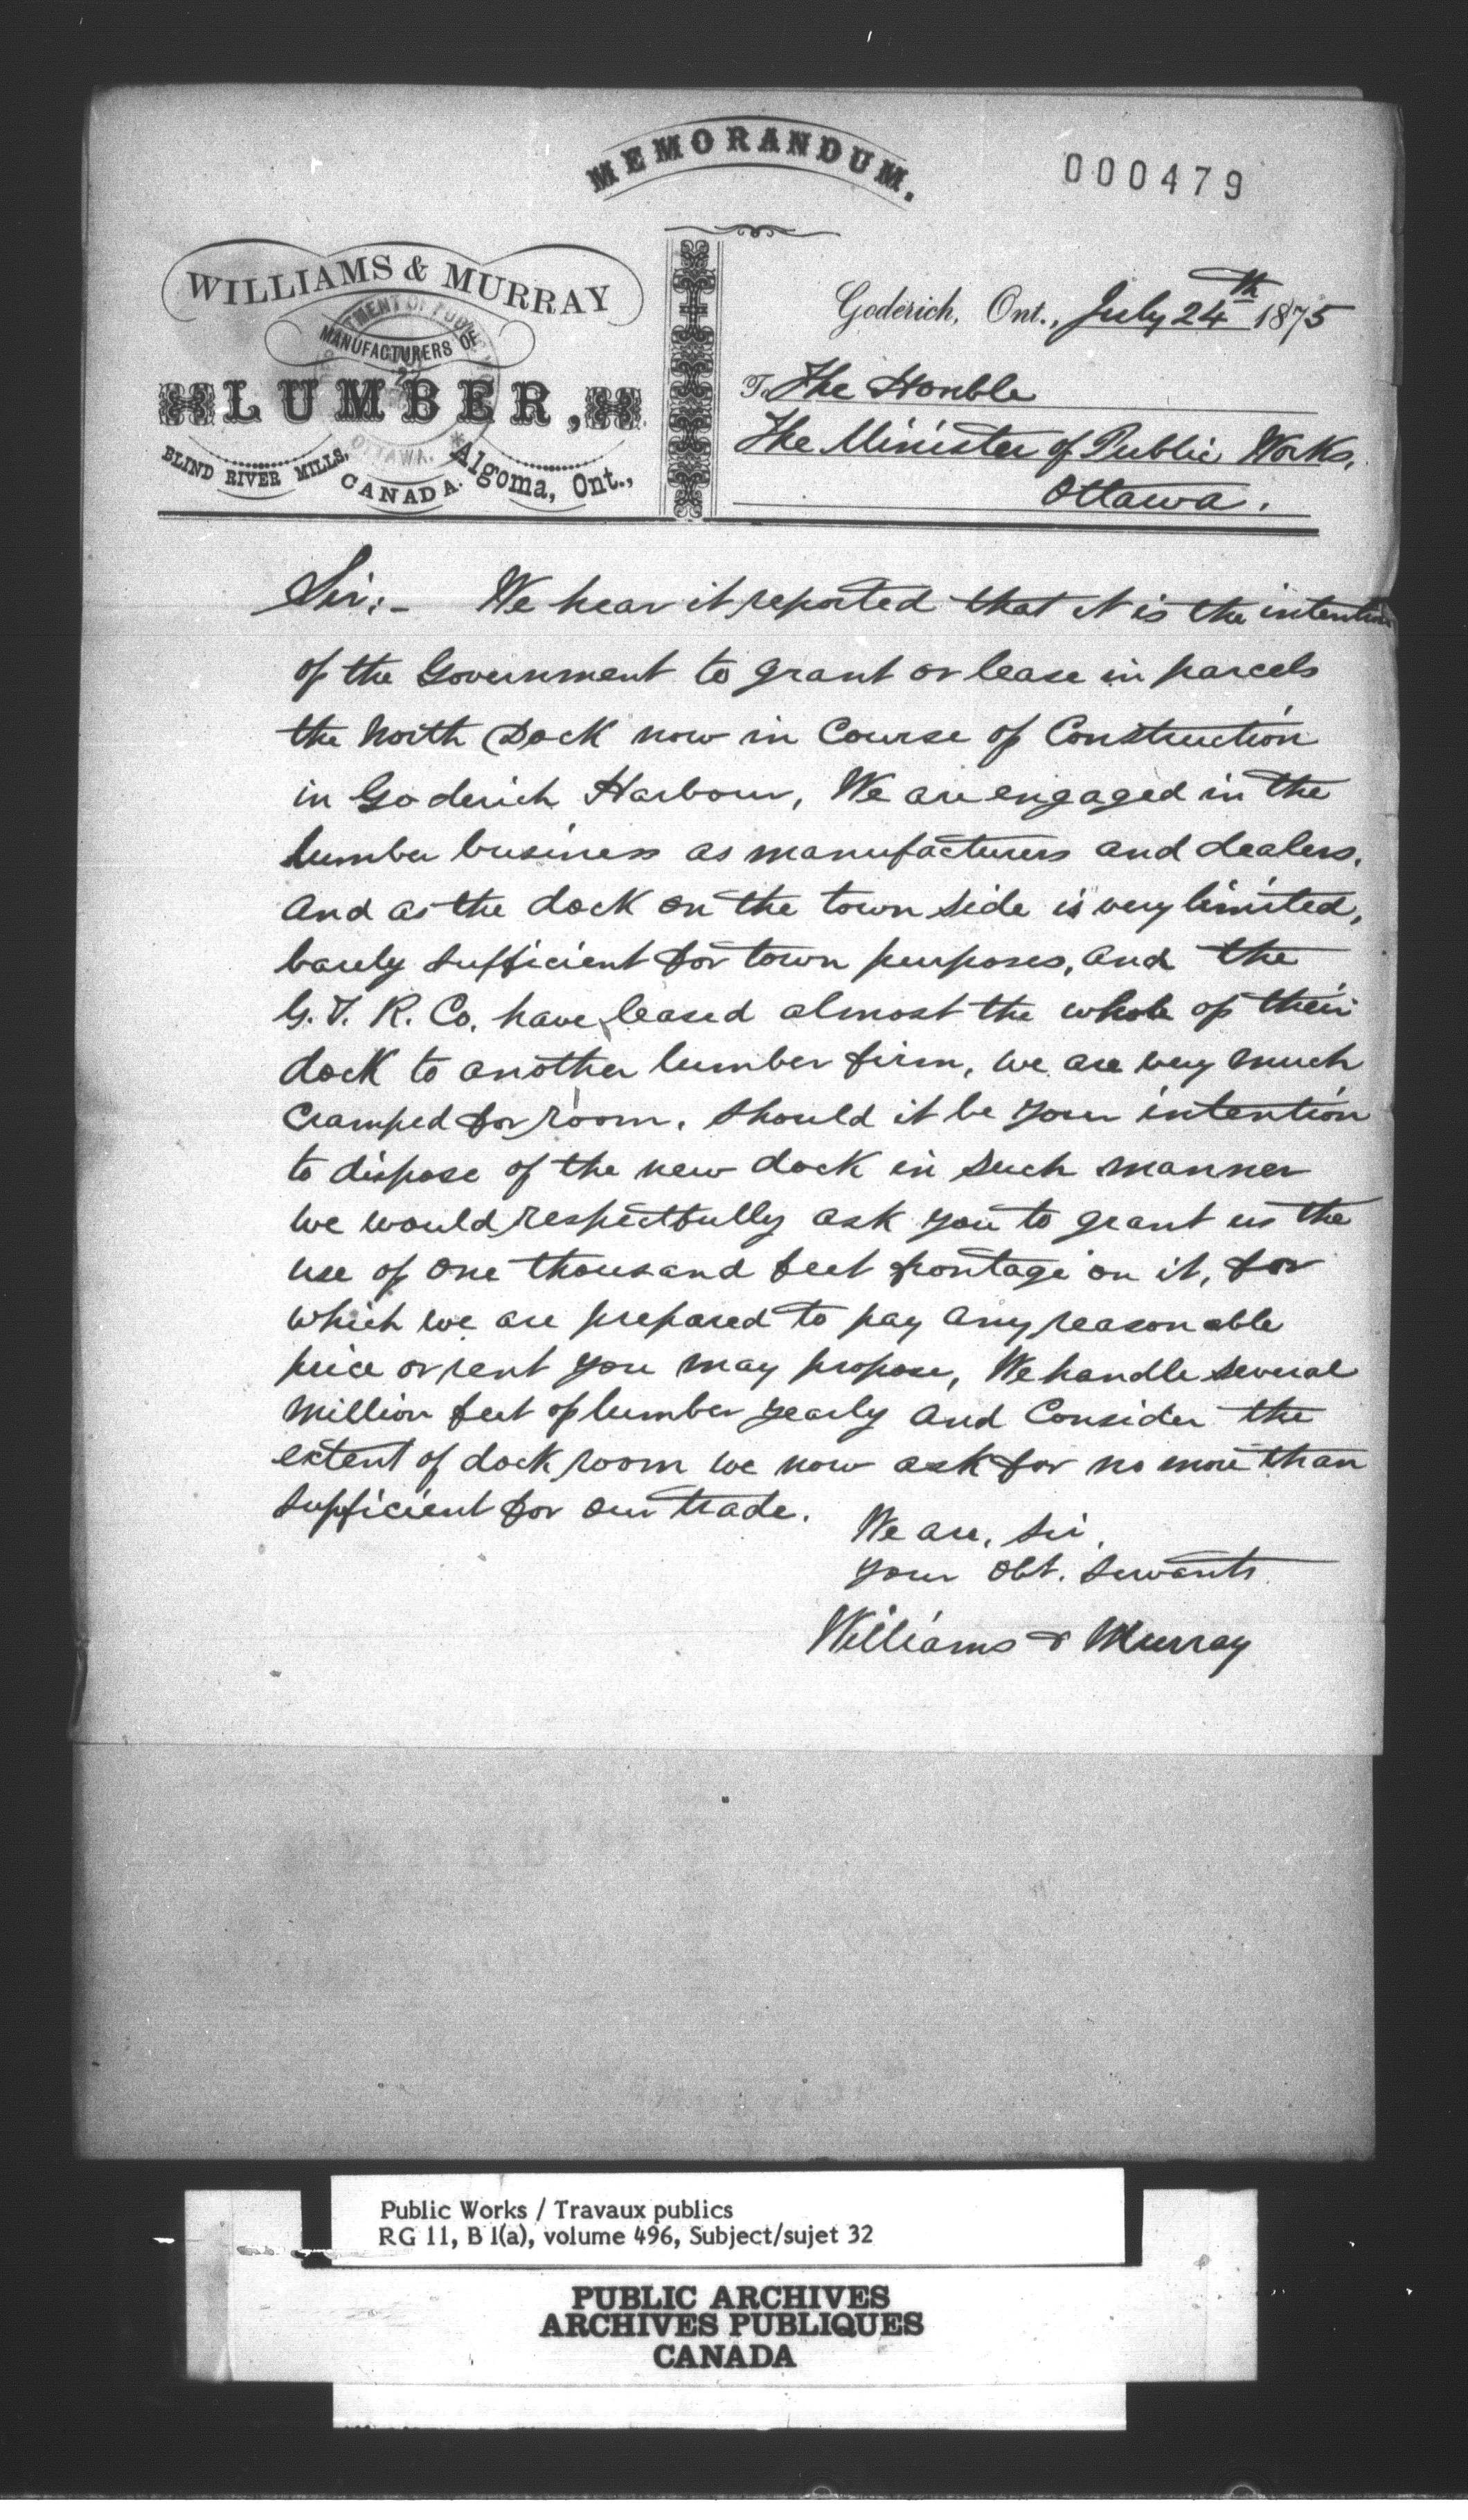 MEMORANDUM.
000479
WILLIAMS & MURRAY
MANUFACTURERS OF
LUMBER,
BLIND RIVER MILLS, Algoma, Ont.,
CANADA.
OTTAWA.
Goderich, Ont., July 24th 1875
To The Honble
The Minister of Public Works,
Ottawa.
Sir:- We hear it reported that it is the intention
of the Government to grant or lease in parcels
the North Dock now in Course of Construction
in Goderich Harbour, We are engaged in the
lumber business as manufacturers and dealers,
and as the dock on the town side is very limited,
barely sufficient for town purposes, and the
G. T. R. Co. have leased almost the whole of their
dock to another lumber firm, we are very much
cramped for room. Should it be your intention
to dispose of the new dock in such manner
we would respectfully ask you to grant us the
use of one thousand feet frontage on it, for
which we are prepared to pay any reasonable
price or rent you may propose, We handle several
million feet of lumber yearly and Consider the
extent of dock room we now ask for no more than
sufficient for our trade.
We are, Sir,
your Obt. Servants
Williams & Murray
Public Works / Travaux publics
RG 11, B 1(a), volume 496, Subject/sujet 32
PUBLIC ARCHIVES
ARCHIVES PUBLIQUES
CANADA